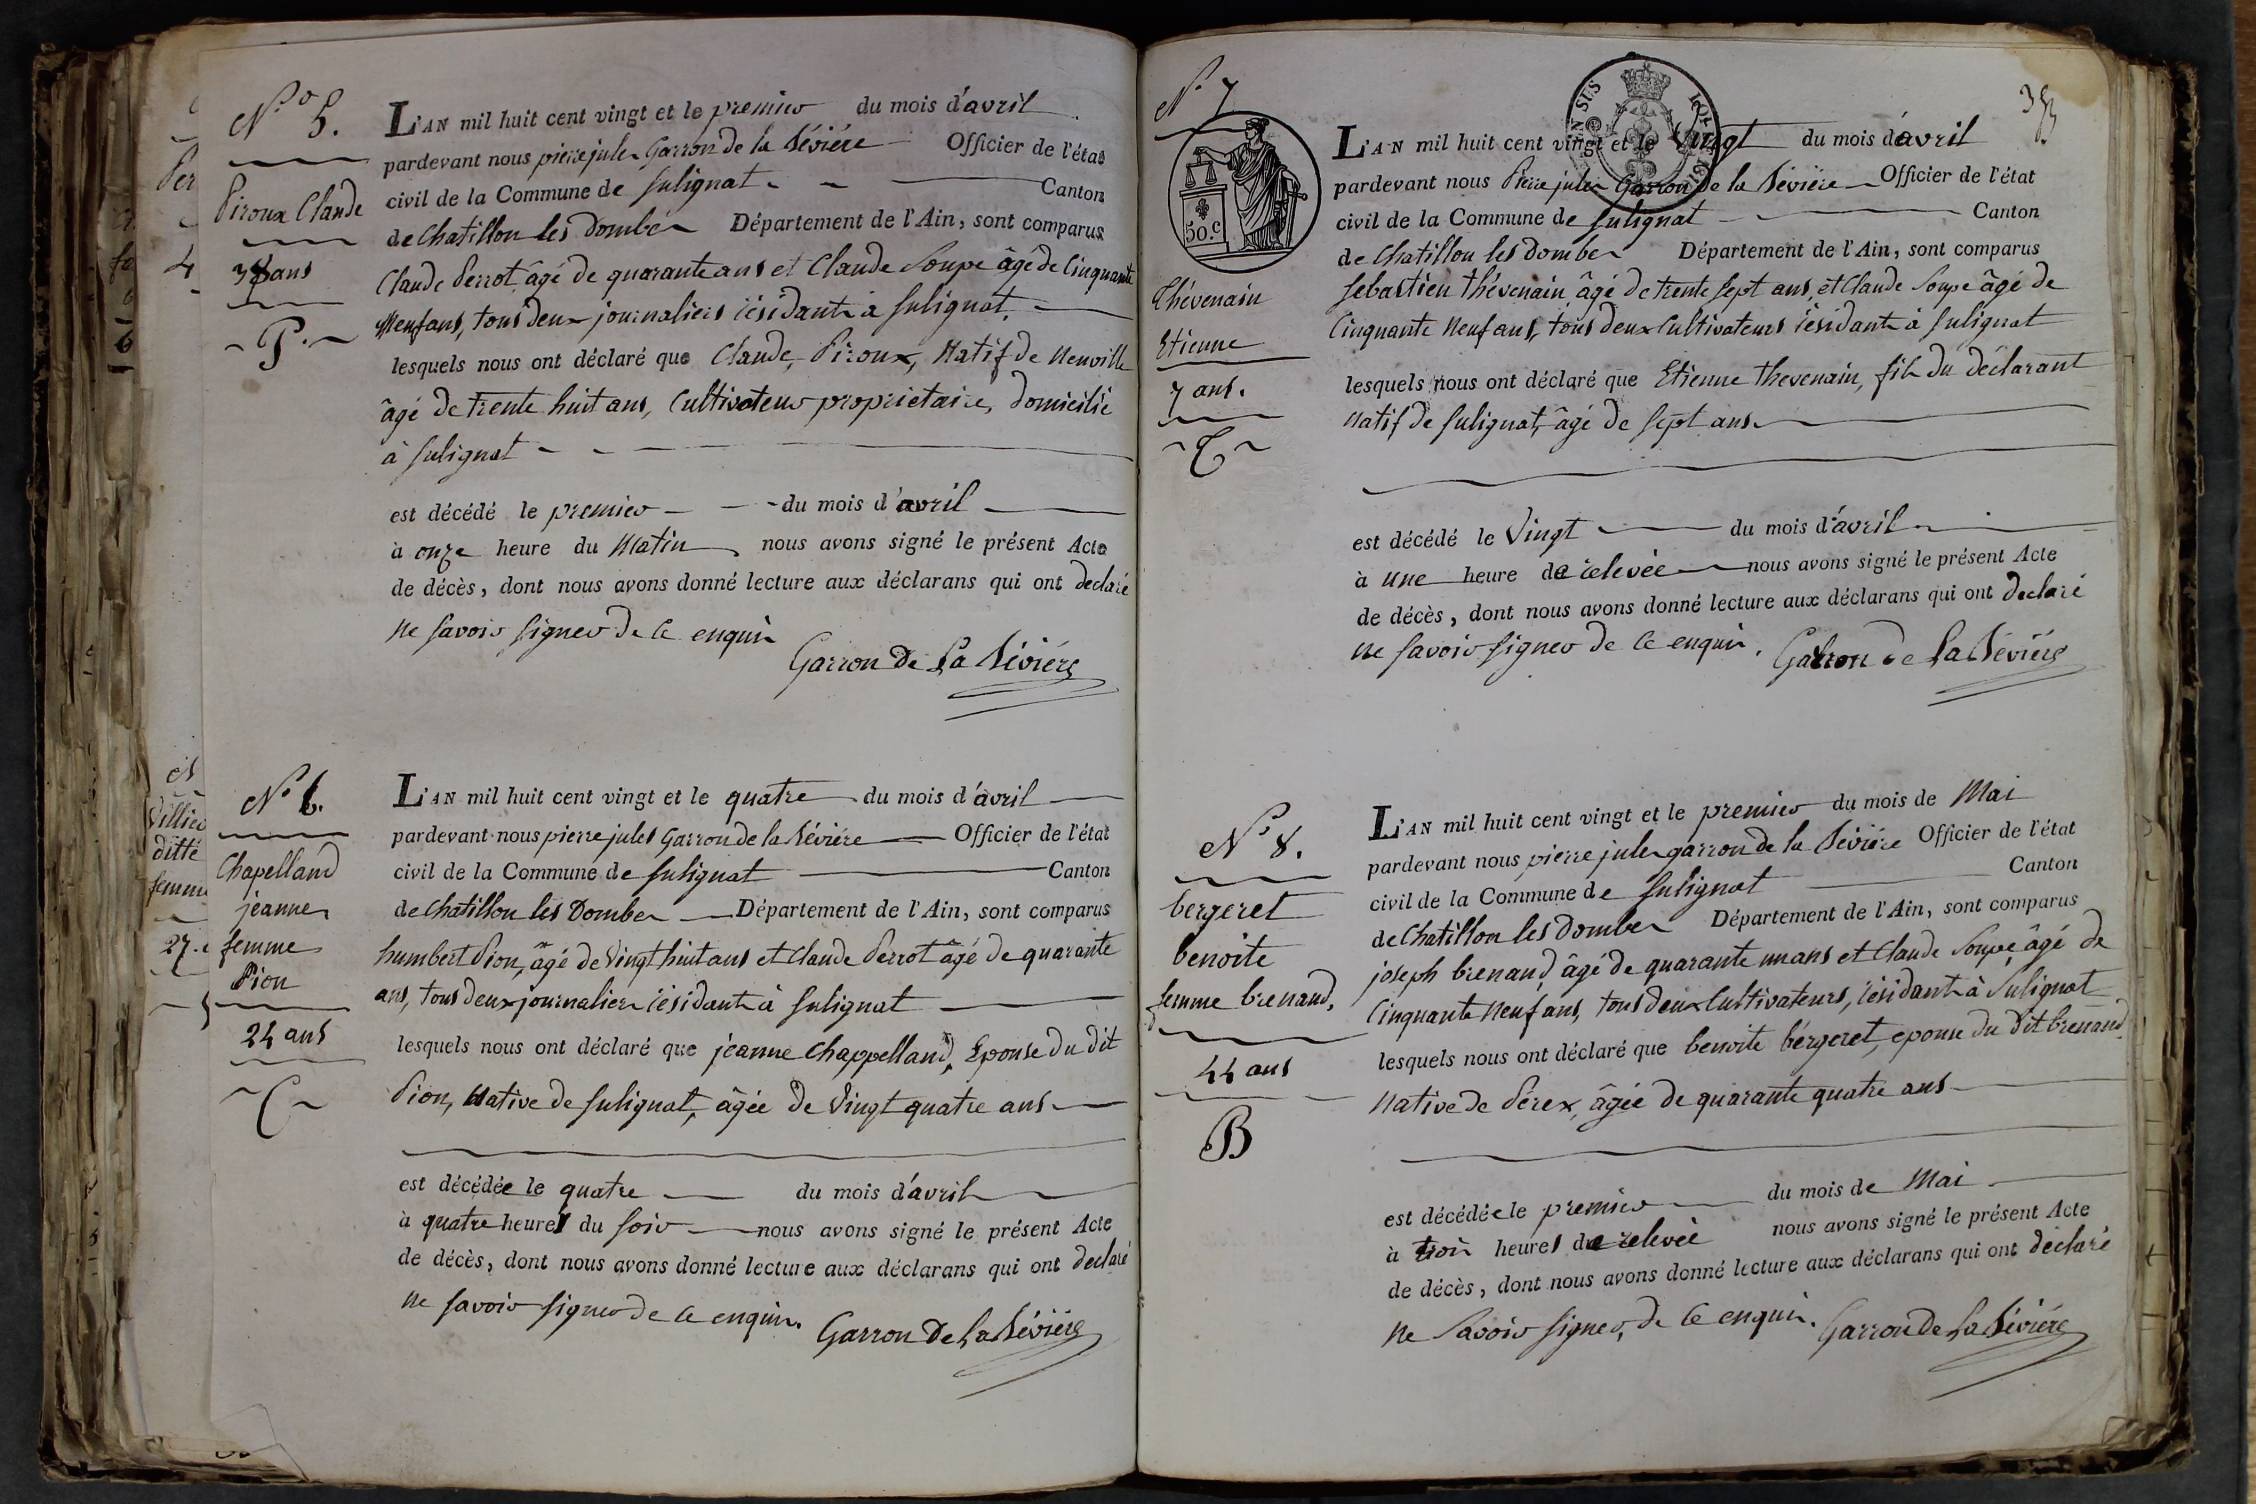 N.º 5.
Piroux Claude
38 ans
P.
L'AN mil huit cent vingt et le premier du mois d'avril
pardevant nous pierre jules Garron de la Sévière Officier de l'état
civil de la Commune de Sulignat Canton
de Chatillon les Dombes Département de l'Ain, sont comparus
Claude Perrot âgé de quarante ans et Claude Soupe âgé de Cinquante
Neuf ans, tous deux journaliers résidants à Sulignat.
lesquels nous ont déclaré que Claude, Piroux, Natif de Neuville
âgé de trente huit ans, Cultivateur propriétaire, domicilié
à Sulignat
est décédé le premier du mois d'avril
à onze heure du Matin nous avons signé le présent Acte
de décès, dont nous avons donné lecture aux déclarans qui ont declaré
ne savoir signer de ce enquis
Garron De La Sévière
N.º 6.
Chapelland
jeanne
femme
Pion
24 ans
C
L'AN mil huit cent vingt et le quatre du mois d'avril
pardevant nous pierre jules Garron de la Sévière Officier de l'état
civil de la Commune de Sulignat Canton
de Chatillon les Dombes Département de l'Ain, sont comparus
humbert Pion, âgé de Vingt huit ans et Claude Perrot âgé de quarante
ans, tous deux journaliers résidants à Sulignat
lesquels nous ont déclaré que jeanne Chappelland, Epouse du dit
Pion, Native de Sulignat, âgée de Vingt quatre ans
est décédée le quatre du mois d'avril
à quatre heures du soir nous avons signé le présent Acte
de décès, dont nous avons donné lecture aux déclarans qui ont declaré
ne savoir signer de ce enquis.
Garron De La Sévière
N.º 7
50.c
353
Thévenain
Etienne
7 ans.
T
L'AN mil huit cent vingt et le Vingt du mois d'avril
pardevant nous Pierre jules Garron de la Sévière Officier de l'état
civil de la Commune de Sulignat Canton
de Chatillon les Dombes Département de l'Ain, sont comparus
Sebastien thévenain, âgé de trente sept ans, et Claude Soupe âgé de
Cinquante Neuf ans, tous deux Cultivateurs résidants à Sulignat
lesquels nous ont déclaré que Etienne thevenain, fils du déclarant
Natif de Sulignat, âgé de sept ans
est décédé le Vingt du mois d'avril
à une heure de relevée nous avons signé le présent Acte
de décès, dont nous avons donné lecture aux déclarans qui ont declaré
ne savoir signer de ce enquis.
Garron de La Sévière
N.º 8.
bergeret
benoite
femme brenand,
44 ans
B
L'AN mil huit cent vingt et le premier du mois de Mai
pardevant nous pierre jules garron de la Sévière Officier de l'état
civil de la Commune de Sulignat Canton
de Chatillon les Dombes Département de l'Ain, sont comparus
joseph brenand, âgé de quarante un ans et Claude Soupe, âgé de
Cinquante Neuf ans, tous deux Cultivateurs, résidants à Sulignat
lesquels nous ont déclaré que benoite bérgeret, epouse du dit brenand
Native de Pérex, âgée de quarante quatre ans
est décédée le premier du mois de Mai
à trois heures de relevée nous avons signé le présent Acte
de décès, dont nous avons donné lecture aux déclarans qui ont déclaré
ne Savoir signer, de ce enquis.
Garron de La Sévière